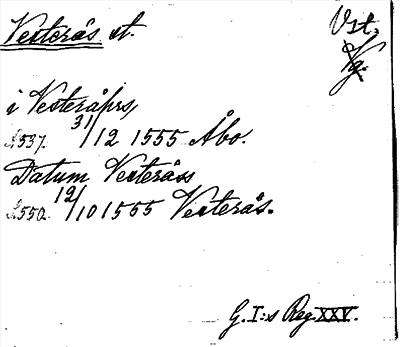 Vesterås st.
Vst.
Vg.
i Vesteråhrs,
A537. 31/12 1555 Åbo.
Datum Vesteråss
A550. 12/10 1555 Vesterås.
G. I:s Reg. XXV.